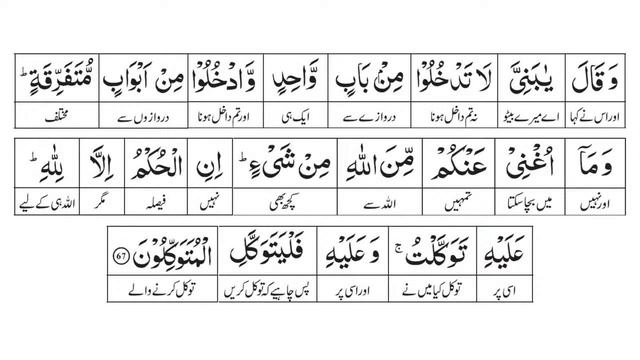 وَ قَالَ يٰبَنِيَّ لَا تَدْخُلُوْا مِنْۢ بَابٍ وَّاحِدٍ وَّادْخُلُوْا مِنْ اَبْوَابٍ مُّتَفَرِّقَةٍ ؕ
اور اس نے کہا اے میرے بیٹو نہ تم داخل ہونا دروازے سے ایک ہی اور تم داخل ہونا دروازوں سے مختلف
وَ مَاۤ اُغْنِيْ عَنْكُمْ مِّنَ اللّٰهِ مِنْ شَيْءٍ ؕ اِنِ الْحُكْمُ اِلَّا لِلّٰهِ ؕ
اور نہیں میں بچا سکتا تمہیں اللہ سے کچھ بھی نہیں فیصلہ مگر اللہ ہی کے لیے
عَلَيْهِ تَوَكَّلْتُ ۚ وَ عَلَيْهِ فَلْيَتَوَكَّلِ الْمُتَوَكِّلُوْنَ 67
اسی پر توکل کیا میں نے اور اسی پر پس چاہیے کہ توکل کریں توکل کرنے والے